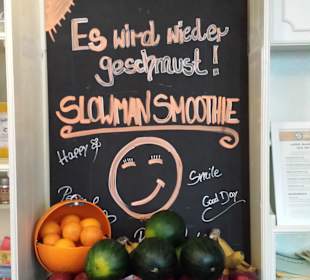 Es wird wieder
geschmust!
SLOWMAN SMOOTHIE
Happy
Smile
Good Day